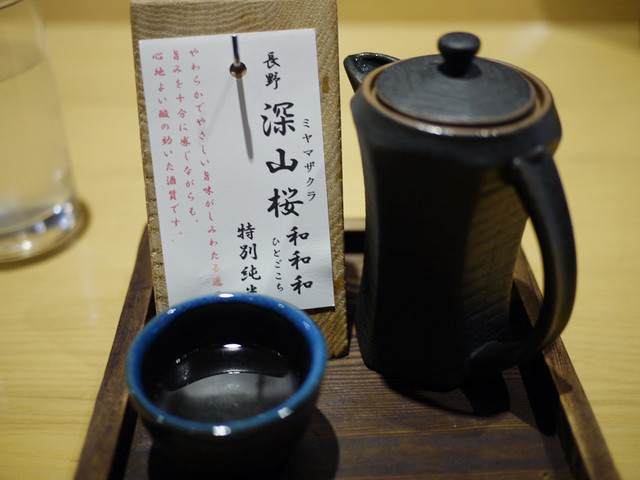 長野
ミヤマザクラ
深山桜
和和和
ひとごこち
特別純米
やわらかでやさしい旨味がしみわたる
旨みを十分に感じながらも、
心地よい酸の効いた酒質です。